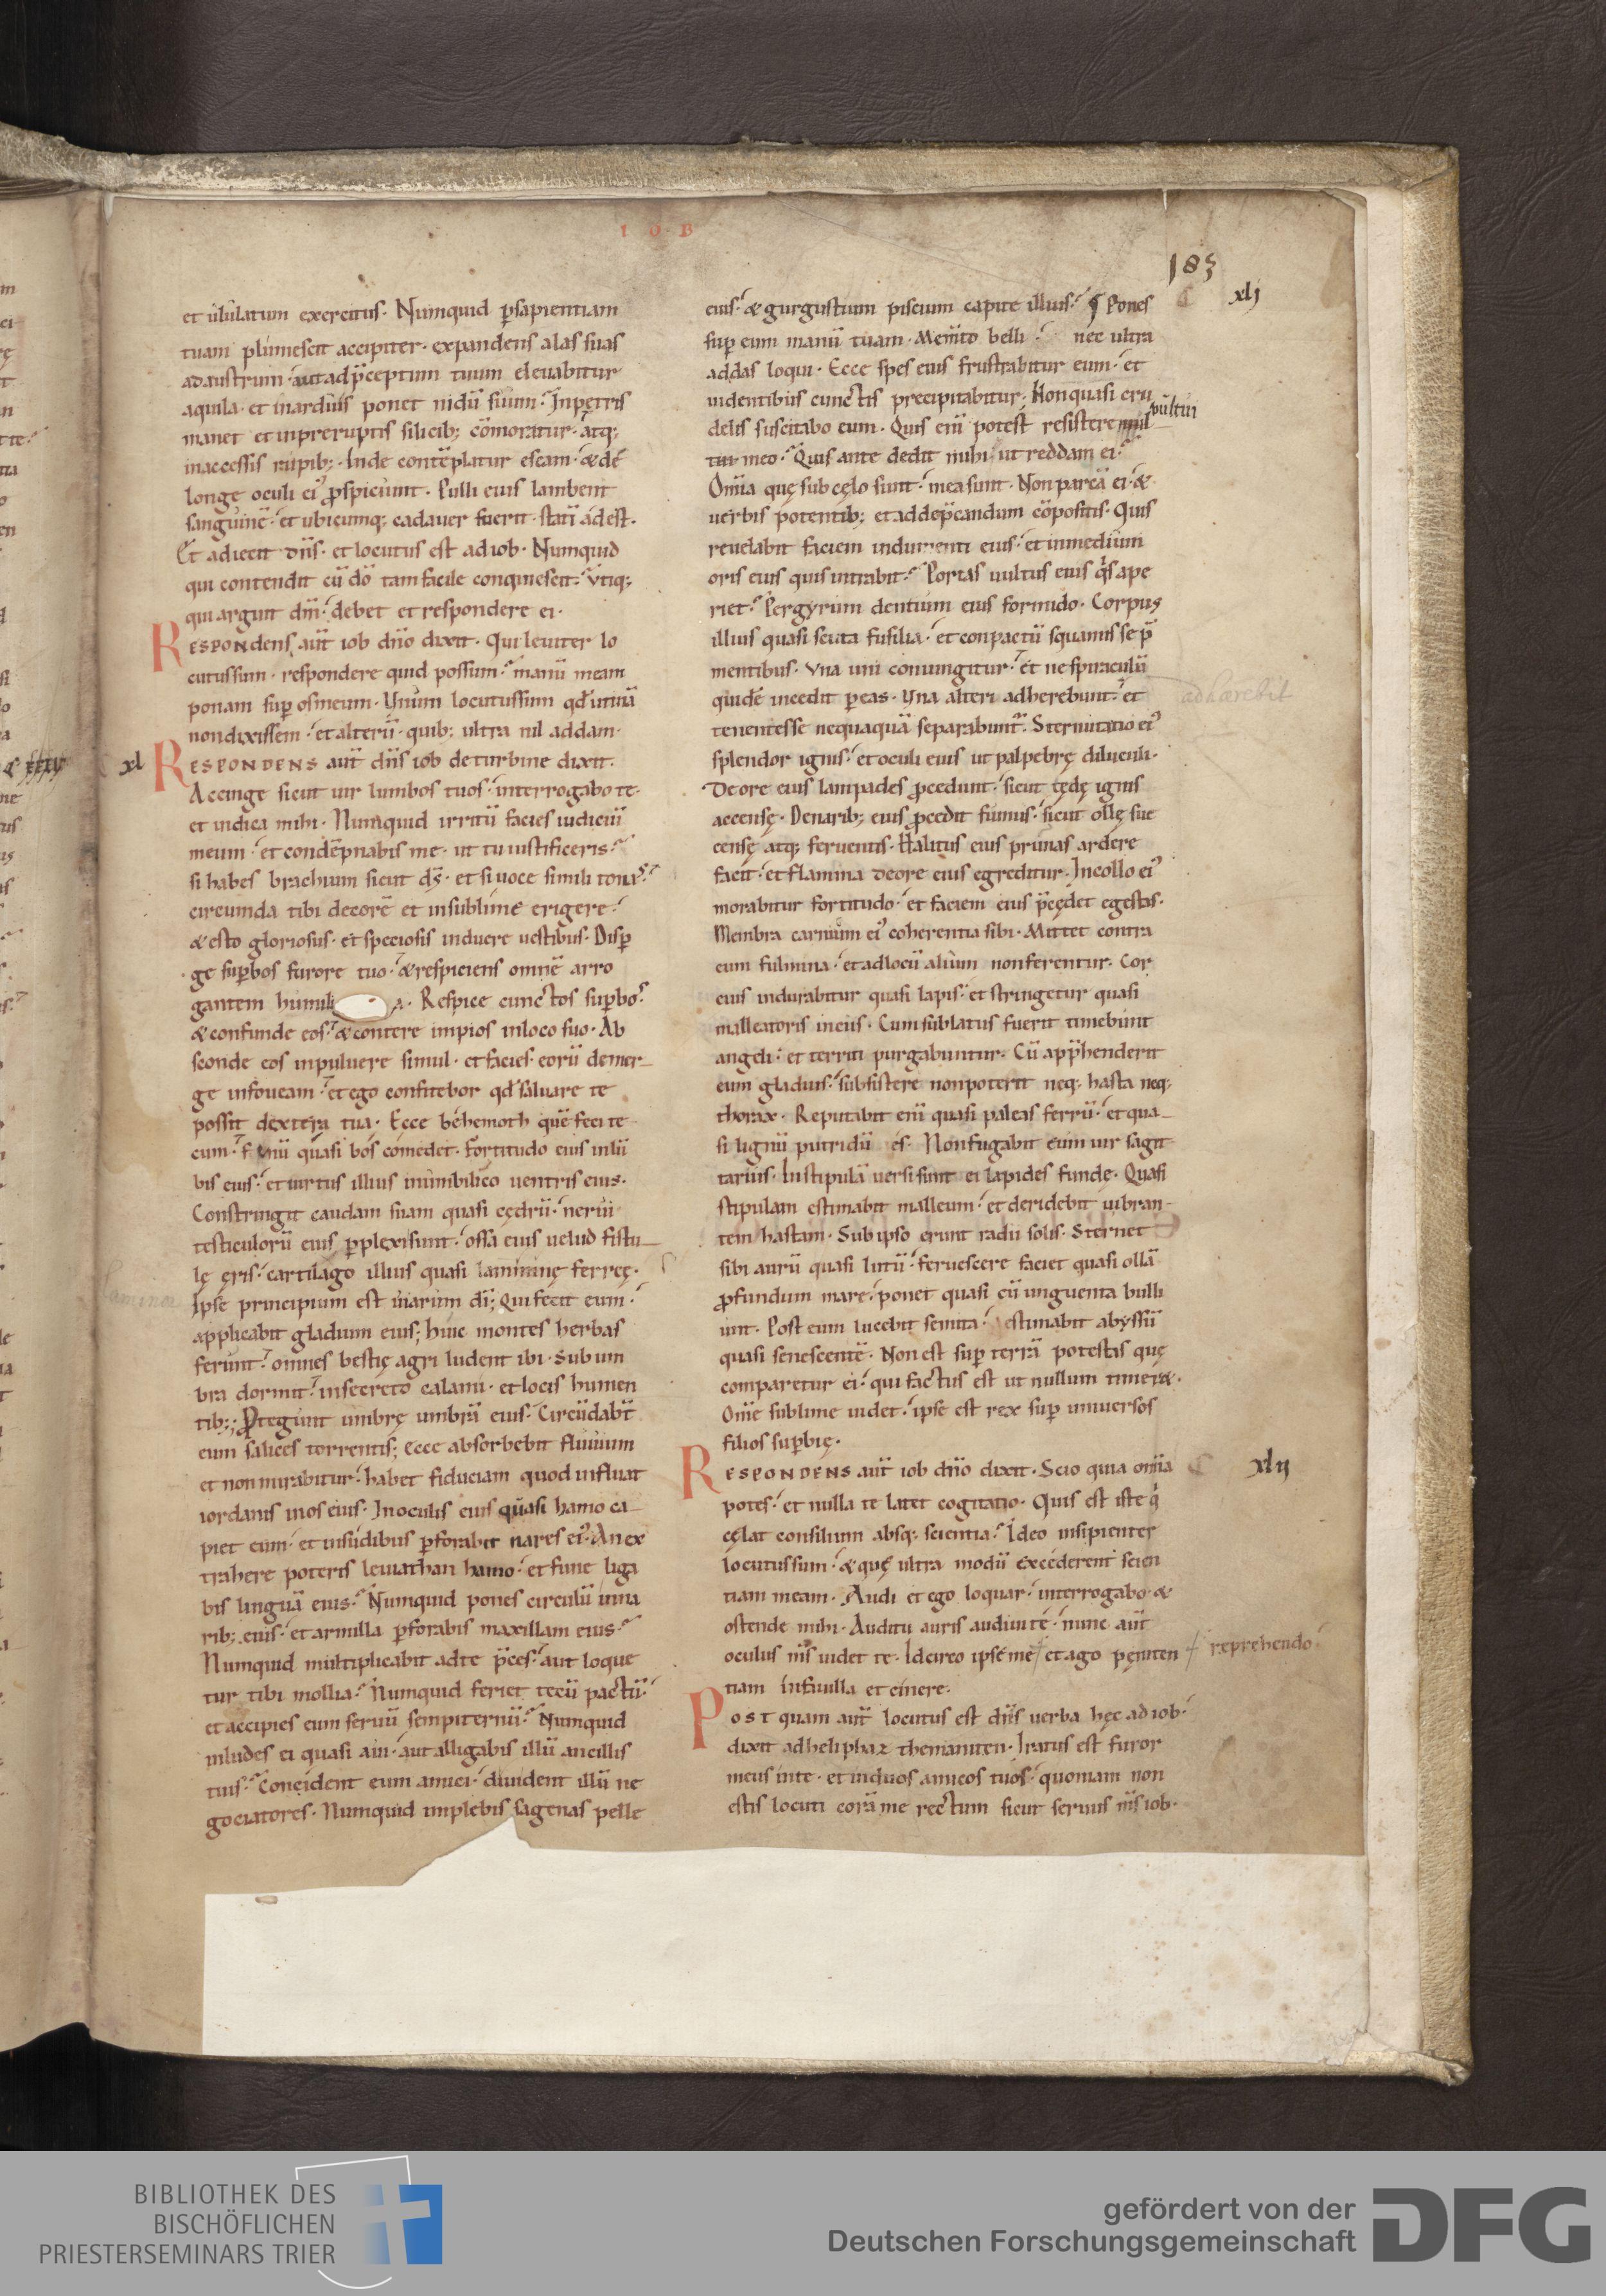 I O B
183
et ululatum exercitus. Numquid ꝑsapientiam
tuam plumescit accipiter. expandens alas suas
adaustrum. aut adp̄ceptum tuum eleuabitur
aquila. et inarduis ponet nidū suum. Inpetris
manet et inpreruptis silicib; cōmoratur. atq;
inaccessis rupib;. Inde contēplatur escam. & de
longe oculi ei᾽ ꝓspiciunt. Pulli eius lambent
sanguinē. et ubicumq; cadauer fuerit. statī adest.
Et adiecit dn̄s. et locutus est ad iob. Numquid
qui contendit cū dō tam facile conquiescit. Vtiq;
qui arguit dm̄. debet et respondere ei.
RESPONdens aūt iob dn̄o dixit. Qui leuiter lo
cutussum. respondere quid possum. manū meam
ponam suꝑ osmeum. Vnum locutussum qd̄ utinā
nondixissem. et alterū. quib; ultra nil addam.
xl
RESPONDENS aūt dn̄s iob deturbine dixit.
Accinge sicut uir lumbos tuos. interrogabo te.
et indica mihi. Numquid irritū facies iudiciū
meum. et condēpnabis me. ut tu iustificeris.
si habes brachium sicut ds̄. et si uoce simili tonas.
circumda tibi decorē et insublime erigere.
& esto gloriosus. et speciosis induere uestibus. Disꝑ
ge suꝑbos furore tuo. & respiciens omnē arro
gantem humili a. Respice cunctos suꝑbos.
& confunde eos. & contere impios inloco suo. Ab
sconde eos inpuluere simul. et facies eorū demer
ge infoueam. et ego confitebor qd̄ saluare te
possit dextera tua. Ecce behemoth quē feci te
cum. Fenū quasi bos comedet. Fortitudo eius inlū
bis eius. et uirtus illius inumbilico uentris eius.
Constringit caudam suam quasi cędrū. nerui
testiculorū eius ꝑplexisunt. ossa eius uelud fistu
lę ęris. cartilago illius quasi laminę ferreę.
Ipse principium est uiarum dī; Qui fecit eum.
applicabit gladium eius; huic montes herbas
ferunt. omnes bestię agri ludent ibi. Sub um
bra dormit. insecreto calami. et locis humen
tib;; Ꝓtegunt umbrę umbrā eius. Circūdabūt
eum salices torrentis; Ecce absorbebit fluuium
et non mirabitur. habet fiduciam quod influat
iordanis inos eius. Inoculis eius quasi hamo ca
piet eum. et insudibus ꝑforabit nares ei᾽. An ex
trahere poteris leuiathan hamo. et fune liga
bis linguā eius. Numquid pones circulū inna
rib; eius. et armilla ꝑforabis maxillam eius.
Numquid multiplicabit adte p̄ces. aut loque
tur tibi mollia. Numquid feriet tecū pactū.
et accipies eum seruū sempiternū. Numquid
inludes ei quasi aui. aut alligabis illū ancillis
tuis. Concident eum amici. diuident illū ne
gociatores. Numquid implebis sagenas pelle
eius. & gurgustium piscium capite illius. Pones
xlj
suꝑ eum manū tuam. Mem̄to belli. nec ultra
addas loqui. Ecce spes eius frustrabitur eum. et
uidentibus cunctis precipitabitur. Nonquasi cru
delis suscitabo eum. Quis eni potest resistere uultui
meo. Quis ante dedit mihi ut reddam ei.
Om̄ia quę subcęlo sunt. mea sunt. Non parcā ei. &
uerbis potentib; et addep̄candum cōpositis. Quis
reuelabit faciem indumenti eius. et inmedium
oris eius quis intrabit. Portas uultus eius qͥs ape
riet. Pergyrum dentium eius formido. Corpus
illius quasi scuta fusilia. et conpactū squamis se p̄
mentibus. Vna uni coniungitur. et ne spiraculū
quidē incedit ꝑeas. Vna alteri adherebunt. et
adhærebit
tenentesse nequaquā separabunt. Sternutatio ei᾽
splendor ignis. et oculi eius ut palpebrę diluculi.
De ore eius lampades ꝓcedunt. sicut tędę ignis
accensę. De narib; eius ꝓcedit fumus. sicut ollę suc
censę atq; feruentis. Halitus eius prunas ardere
facit. et flamma deore eius egreditur. Incollo ei᾽
morabitur fortitudo. et faciem eius p̄cędet egestas.
Membra carnium ei᾽ coherentia sibi. Mittet contra
eum fulmina. et adlocū alium nonferentur. Cor
eius indurabitur quasi lapis. et stringetur quasi
malleatoris incus. Cum sublatus fuerit timebunt
angeli. et territi purgabuntur. Cū app̄henderit
eum gladius. subsistere nonpoterit neq; hasta neq;
thorax. Reputabit eni quasi paleas ferrū. et qua
si lignū putridū es. Nonfugabit eum uir sagit
tarius. Instipulā uersi sunt ei lapides fundę. Quasi
stipulam estimabit malleum. et deridebit uibran
tem hastam. Sub ipso erunt radii solis. Sternet
sibi aurū quasi lutū. feruescere faciet quasi ollā
ꝓfundum mare. ponet quasi cū unguenta bulli
unt. Post eum lucebit semita. estimabit abyssū
quasi senescentē. Non est suꝑ terrā potestas quę
comparetur ei. qui factus est ut nullum timer&.
Om̄e sublime uidet. ipse est rex suꝑ uniuersos
filios suꝑbię.
RESPONDENS aūt iob dn̄o dixit. Scio quia om̄ia
xlij
potes. et nulla te latet cogitatio. Quis est iste qͥ
cęlat consilium absq; scientia. Ideo insipienter
locutussum. & quę ultra modū excederent scien
tiam meam. Audi et ego loquar. interrogabo &
ostende mihi. Auditu auris audiui te. nunc aūt
oculus ms̄ uidet te. Idcirco ipse me et ago pęniten
reprehendo
tiam infauilla et cinere.
POSTquam aūt locutus est dn̄s uerba hęc ad iob.
dixit adheliphaz themaniten. Iratus est furor
meus inte. et induos amicos tuos. quoniam non
estis locuti corā me rectum sicut seruus ms̄ iob.
BIBLIOTHEK DES
BISCHÖFLICHEN
PRIESTERSEMINARS TRIER
gefördert von der
Deutschen Forschungsgemeinschaft
DFG